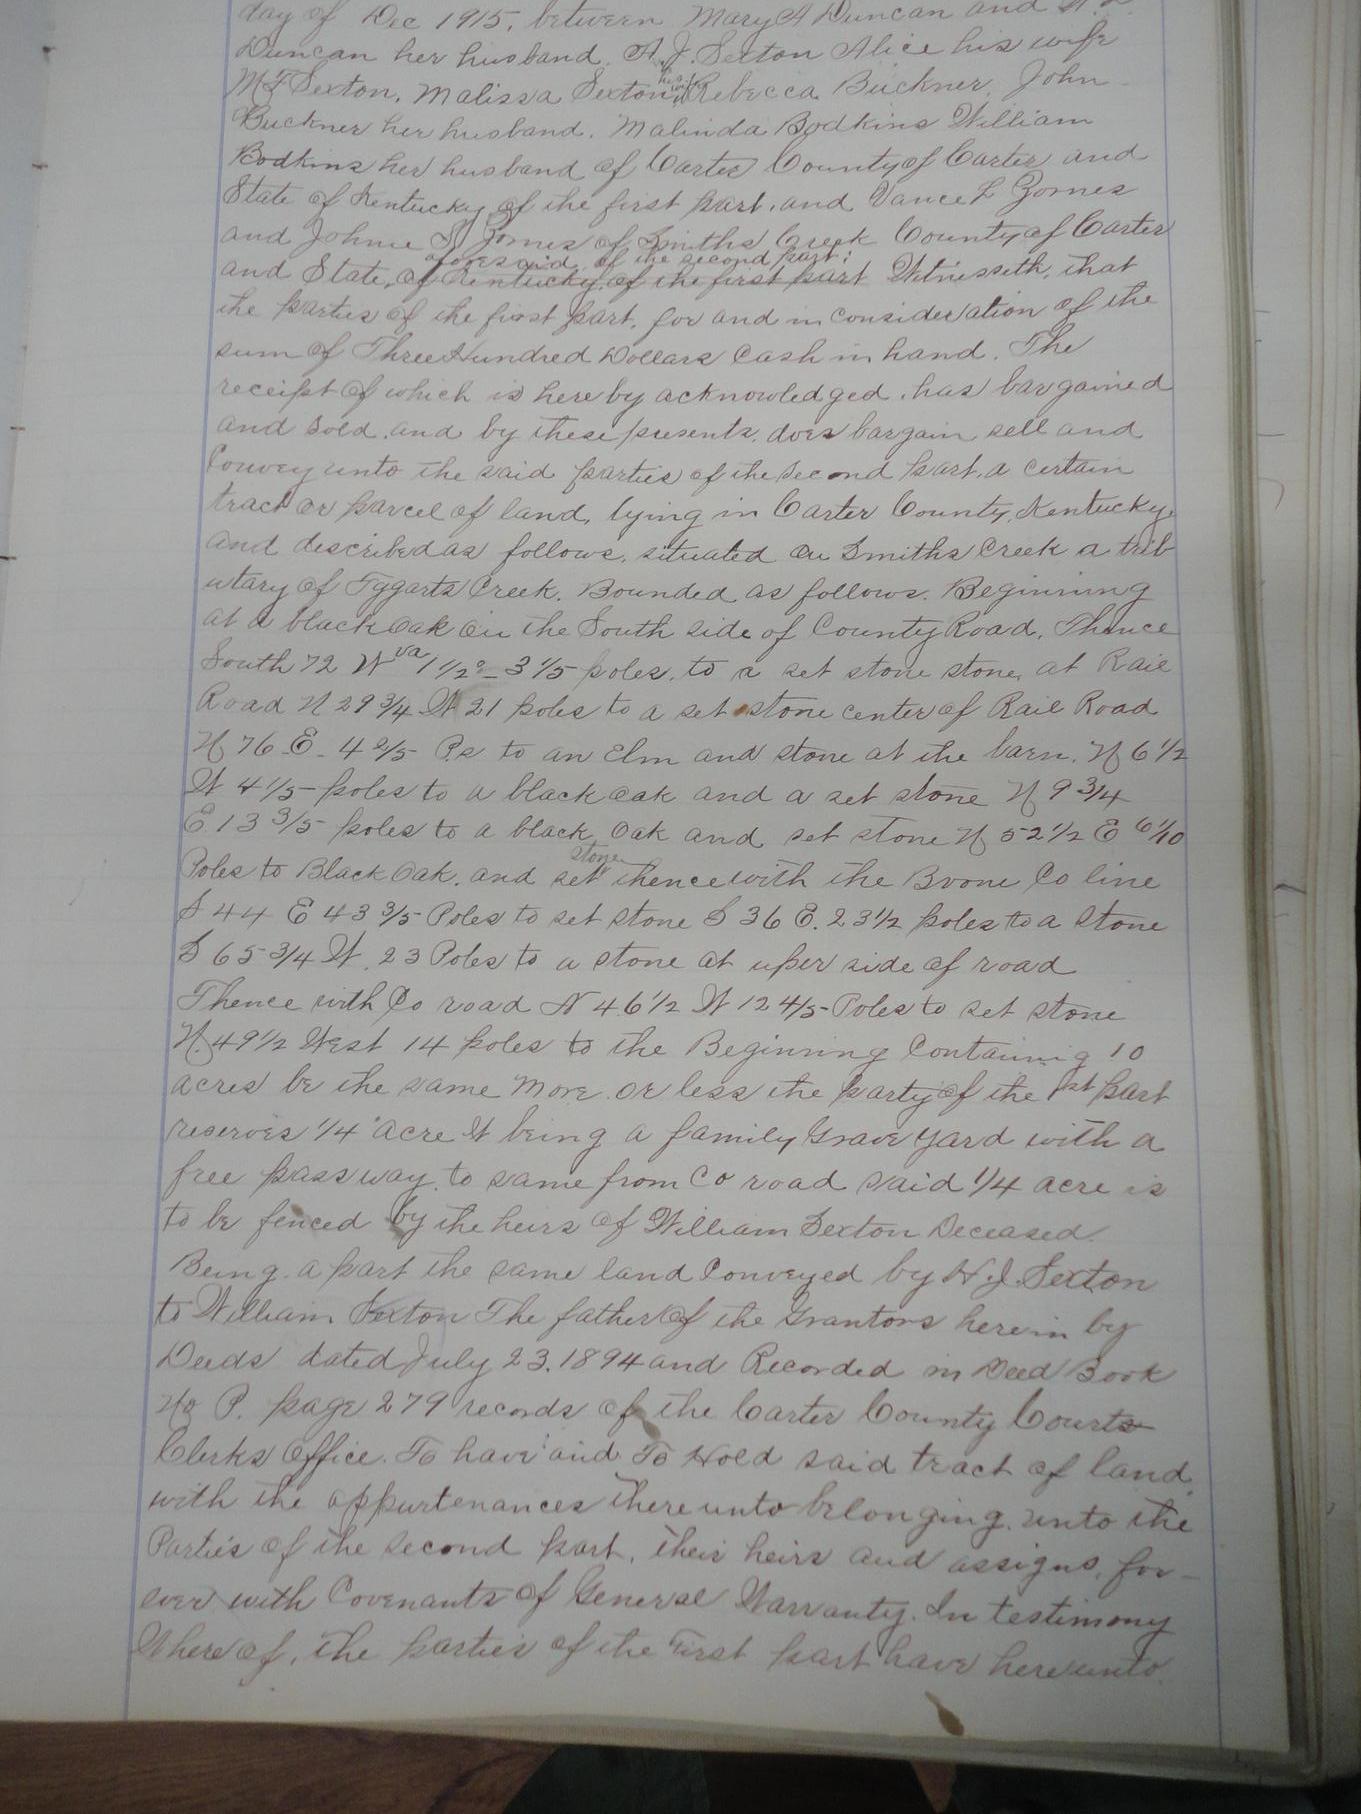 day of Dec 1915, between Mary A Duncan and
Duncan her husband. A. J. Sexton Alice his wife
M F Sexton, Malissa Sexton, his wife Rebecca Buckner, John
Buckner her husband. Malinda Bodkins William
Bodkins her husband of Carter County of Carter and
State of Kentucky of the first part, and Vance L Zornes
and Johnie S Zornes of Smiths Creek County of Carter
aforesaid, of the second part;
and State, of Kentucky, of the first part Witnesseth, that
the parties of the first part, for and in consideration of the
sum of Three Hundred Dollars Cash in hand. The
receipt of which is here by acknowledged, has bargained
and sold, and by these presents, does bargain, sell and
Convey unto the said parties of the second part, a certain
tract or parcel of land, lying in Carter County, Kentucky,
and described as follows, situated on Smiths Creek a trib
utary of Tygarts Creek. Bounded as follows. Beginning
at a black oak on the South side of County Road, Thence
South 72 W va 1 1/2° - 3 1/5 poles, to a set stone stone, at Rail
Road N 29 3/4 W 21 poles to a set stone center of Rail Road
N 76 E - 4 2/5 Ps to an Elm and stone at the barn. N 6 1/2
W 4 1/5 poles to a black oak and a set stone N 9 3/4
E 13 3/5 poles to a black Oak and set stone N 52 1/2 E 6 1/10
stone
Poles to Black Oak, and set thence with the Boone Co line
S 44 E 43 3/5 Poles to set stone S 36 E. 23 1/2 poles to a stone
S 65 3/4 W. 23 Poles to a stone at uper side of road
Thence with Co road N 46 1/2 W 12 4/5 Poles to set stone
N. 49 1/2 West 14 poles to the Beginning Containing 10
acres be the same more or less the party of the 1st part
reserves 1/4 acre It being a family Grave yard with a
free passway to same from Co road said 1/4 acre is
to be fenced by the heirs of William Sexton Deceased.
Being a part the same land Conveyed by H. J. Sexton
to William Sexton The father of the Grantors herein by
Deeds dated July 23. 1894 and Recorded in Deed Book
No P. page 279 records of the Carter County Courts
Clerks Office. To have and To Hold said tract of land,
with the appurtenances there unto belonging, unto the
Parties of the second part, their heirs and assigns, for-
ever with Covenants of General Warranty. In testimony
Where of, the parties of the First part have hereunto